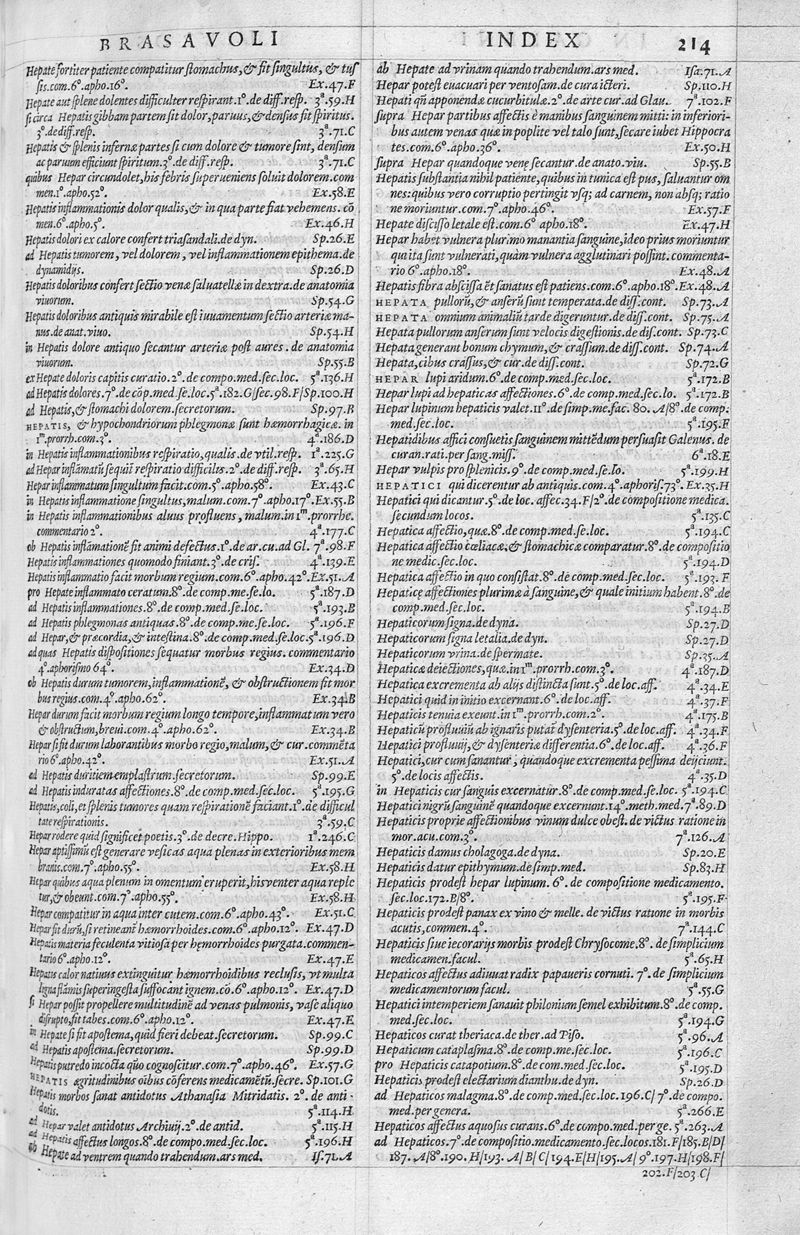 BRASAVOLI
INDEX 214
Hepate fortiter patiente compatitur stomachus, & fit singultus, & tuſ
ſis.com.6°.apho.16°. Ex.47.F
Hepate aut ſplene dolentes difficulter reſpirant.1°.de diff.reſp. 3ª.59.H
ſi circa Hepatis gibbam partem ſit dolor, paruus, & denſus fit ſpiritus.
3°.de diff.reſp. 3ª.71.C
Hepatis & ſplenis infernæ partes ſi cum dolore & tumore ſint, denſum
ac paruum efficiunt ſpiritum.3°.de diff.reſp. 3ª.71.C
quibus Hepar circundolet, his febris ſuperueniens ſoluit dolorem.com
men.1°.apho.52°. Ex.58.E
Hepatis inflammationis dolor qualis, & in qua parte fiat vehemens. cō
men.6°.apho.5°. Ex.46.H
Hepatis dolori ex calore confert triaſandali.de dyn. Sp.26.E
ad Hepatis tumorem, vel dolorem, vel inflammationem epithema.de
dynamidijs. Sp.26.D
Hepatis doloribus confert ſectio venæ ſaluatellæ in dextra.de anatomia
viuorum. Sp.54.G
Hepatis doloribus antiquis mirabile eſt iuuamentum ſectio arteriæ ma-
nus.de anat.viuo. Sp.54.H
in Hepatis dolore antiquo ſecantur arteriæ poſt aures. de anatomia
viuorum. Sp.55.B
ex Hepate doloris capitis curatio.2°.de compo.med.ſec.loc. 5ª.136.H
ad Hepatis dolores.7°.de cōp.med.ſe.loc.5ª.182.G/ſec.98.F/Sp.100.H
ad Hepatis, & ſtomachi dolorem.ſecretorum. Sp.97.B
HEPATIS, & hypochondriorum phlegmonæ ſunt hæmorrhagicæ. in
1ᵐ.prorrh.com.3°. 4ª.186.D
in Hepatis inflammationibus reſpiratio, qualis.de vtil.reſp. 1ª.225.G
ad Hepar inflāmatū ſequit̄ reſpiratio difficilis.2°.de diff.reſp. 3ª.65.H
Hepar inflammatum ſingultum facit.com.5°.apho.58°. Ex.43.C
in Hepatis inflammatione ſingultus, malum.com.7°.apho.17°.Ex.55.B
in Hepatis inflammationibus aluus profluens, malum.in 1ᵐ.prorrhe.
commentario 2°. 4ª.177.C
ob Hepatis inflāmationē fit animi defectus.1°.de ar.cu.ad Gl. 7ª.98.F
Hepatis inflammationes quomodo finiant.3°.de criſ. 4ª.139.E
Hepatis inflammatio facit morbum regium.com.6°.apho.42°.Ex.51.A
pro Hepate inflammato ceratum.8°.de comp.me.ſe.lo. 5ª.187.D
ad Hepatis inflammationes.8°.de comp.med.ſe.loc. 5ª.193.B
ad Hepatis phlegmonas antiquas.8°.de comp.me.ſec.loc. 5ª.196.F
ad Hepar, & præcordia, & inteſtina.8°.de comp.med.ſe.loc.5ª.196.D
ad quas Hepatis diſpoſitiones ſequatur morbus regius. commentario
4°.aphoriſmo 64°. Ex.34.D
ob Hepatis durum tumorem, inflammationē, & obſtructionem fit mor
bus regius.com.4°.apho.62°. Ex.34.B
Hepar durum facit morbum regium longo tempore, inflammatum vero
& obſtructum, breui.com.4°.apho.62°. Ex.34.B
Hepar ſi fit durum laborantibus morbo regio, malum, & cur.commēta
rio 6°.apho.42°. Ex.51.A
ad Hepatis duritiem emplaſtrum.ſecretorum. Sp.99.E
ad Hepatis induratas affectiones.8°.de comp.med.ſec.loc. 5ª.195.G
Hepatis, coli, et ſplenis tumores quam reſpirationē faciant.1°.de difficul
tate reſpirationis. 3ª.59.C
Hepar rodere quid ſignificet poetis.3°.de decre.Hippo. 1ª.246.C
Hepar aptiſſimū eſt generare veſicas aqua plenas in exterioribus mem
branis.com.7°.apho.55°. Ex.58.H
Hepar quibus aqua plenum in omentum eruperit, his venter aqua reple
tur, & obeunt.com.7°.apho.55°. Ex.58.H
Hepar compatitur in aqua inter cutem.com.6°.apho.43°. Ex.51.C
Hepar fit durū, ſi retineant̄ hæmorrhoides.com.6°.apho.12°. Ex.47.D
Hepatis materia feculenta vitioſa per hęmorrhoides purgata.commen-
tario 6°.apho.12°. Ex.47.E
Hepatis calor natiuus extinguitur hæmorrhoidibus recluſis, vt multa
ligna flāmis ſuperingeſta ſuffocant ignem.cō.6°.apho.12°. Ex.47.D
ſi Hepar poſſit propellere multitudinē ad venas pulmonis, vaſe aliquo
diſrupto, fit tabes.com.6°.apho.12°. Ex.47.E
in Hepate ſi fit apoſtema, quid fieri debeat.ſecretorum. Sp.99.C
ad Hepatis apoſtema.ſecretorum. Sp.99.D
Hepatis putredo incocta quō cognoſcitur.com.7°.apho.46°. Ex.57.G
HEPATIS ægritudinibus oībus cōferens medicamētū.ſecre. Sp.101.G
Hepatis morbos ſanat antidotus Athanaſia Mitridatis. 2°. de anti-
dotis. 5ª.114.H
ad Hepar valet antidotus Archiuij.2°.de antid. 5ª.115.H
ad Hepatis affectus longos.8°.de compo.med.ſec.loc. 5ª.196.H
ab Hepate ad ventrem quando trahendum.ars med. Iſ.71.A
ab Hepate ad vrinam quando trahendum.ars med. Iſa.71.A
Hepar poteſt euacuari per ventoſam.de cura icteri. Sp.110.H
Hepati qñ apponendæ cucurbitulæ.2°.de arte cur.ad Glau. 7ª.102.F
ſupra Hepar partibus affectis è manibus ſanguinem mitti: in inferiori-
bus autem venas quæ in poplite vel talo ſunt, ſecare iubet Hippocra
tes.com.6°.apho.36°. Ex.50.H
ſupra Hepar quandoque venę ſecantur.de anato.viu. Sp.55.B
Hepatis ſubſtantia nihil patiente, quibus in tunica eſt pus, ſaluantur om
nes: quibus vero corruptio pertingit vſq; ad carnem, non abſq; ratio
ne moriuntur.com.7°.apho.46°. Ex.57.F
Hepate diſciſſo letale eſt.com.6° apho.18°. Ex.47.H
Hepar habet vulnera plurimo manantia ſanguine, ideo prius moriuntur
qui ita ſunt vulnerati, quàm vulnera agglutinari poſſint. commenta-
rio 6°.apho.18°. Ex.48.A
Hepatis fibra abſciſſa ēt ſanatus eſt patiens.com.6°.apho.18°.Ex.48.A
HEPATA pullorū, & anſerū ſunt temperata.de diſſ.cont. Sp.73.A
HEPATA omnium animaliū tarde digeruntur.de diſſ.cont. Sp.75.A
Hepata pullorum anſerum ſunt velocis digeſtionis.de diſ.cont. Sp.73.C
Hepata generant bonum chymum, & craſſum.de diſſ.cont. Sp.74.A
Hepata, cibus craſſus, & cur.de diſſ.cont. Sp.72.G
HEPAR lupi aridum.6°.de comp.med.ſec.loc. 5ª.172.B
Hepar lupi ad hepaticas affectiones.6°.de comp.med.ſec.lo. 5ª.172.B
Hepar lupinum hepaticis valet.11°.de ſimp.me.fac. 80. A/8°.de comp:
med.ſec.loc. 5ª.195.F
Hepatidibus affici conſuetis ſanguinem mittēdum perſuaſit Galenus. de
curan.rati.per ſang.miſſ. 6ª.18.E
Hepar vulpis pro ſplenicis.9°.de comp.med.ſe.lo. 5ª.199.H
HEPATICI qui dicerentur ab antiquis.com.4°.aphoriſ.73°. Ex.35.H
Hepatici qui dicantur.5°.de loc. affec.34.F/2°.de compoſitione medica.
ſecundum locos. 5ª.135.C
Hepatica affectio, quæ.8°.de comp.med.ſe.loc. 5ª.194.C
Hepatica affectio cœliacæ, & ſtomachicæ comparatur.8°.de compoſitio
ne medic.ſec.loc. 5ª.194.D
Hepatica affectio in quo conſiſtat.8°.de comp.med.ſec.loc. 5ª.193.F
Hepaticę affectiones plurimæ à ſanguine, & quale initium habent.8°.de
comp.med.ſec.loc. 5ª.194.B
Hepaticorum ſigna.de dyna. Sp.27.D
Hepaticorum ſigna letalia.de dyn. Sp.27.D
Hepaticorum vrina.de ſpermate. Sp.35.A
Hepaticæ deiectiones, quæ.in 1ᵐ.prorrh.com.3°. 4ª.187.D
Hepatica excrementa ab alijs diſtincta ſunt.5°.de loc.aff. 4ª.34.E
Hepatici quid in initio excernant.6°.de loc.aff. 4ª.37.F
Hepaticis tenuia exeunt.in 1ᵐ.prorrh.com.2°. 4ª.175.B
Hepaticū profluuiū ab ignaris putat̄ dyſenteria.5°.de loc.aff. 4ª.34.F
Hepatici profluuij, & dyſenteriæ differentia.6°.de loc.aff. 4ª.36.F
Hepatici, cur cum ſanantur, quandoque excrementa peſſima deijciunt.
5°.de locis affectis. 4ª.35.D
in Hepaticis cur ſanguis excernatur.8°.de comp.med.ſe.loc. 5ª.194.C
Hepatici nigrū ſanguinē quandoque excernunt.14°.meth.med.7ª.89.D
Hepaticis proprie affectionibus vinum dulce obeſt.de victus ratione in
mor.acu.com.3°. 7ª.126.A
Hepaticis damus cholagoga.de dyna. Sp.20.E
Hepaticis datur epithymum.de ſimp.med. Sp.83.H
Hepaticis prodeſt hepar lupinum. 6°. de compoſitione medicamento.
ſec.loc.172.B/8°. 5ª.195.F
Hepaticis prodeſt panax ex vino & melle. de victus ratione in morbis
acutis, commen.4°. 7ª.144.C
Hepaticis ſiue iecorarijs morbis prodeſt Chryſocome.8°. de ſimplicium
medicamen.facul. 5ª.65.H
Hepaticos affectus adiuuat radix papaueris cornuti. 7°. de ſimplicium
medicamentorum facul. 5ª.55.G
Hepatici intemperiem ſanauit philonium ſemel exhibitum.8°.de comp.
med.ſec.loc. 5ª.194.G
Hepaticos curat theriaca.de ther.ad Piſo. 5ª.96.A
Hepaticum cataplaſma.8°.de comp.me.ſec.loc. 5ª.196.C
pro Hepaticis catapotium.8°.de com.med.ſec.loc. 5ª.195.D
Hepaticis prodeſt electarium dianthu.de dyn. Sp.26.D
ad Hepaticos malagma.8°.de comp.med.ſec.loc.196.C/ 7°.de compo.
med.per genera. 5ª.266.E
Hepaticos affectus aquoſus curans.6°.de compo.med.per ge. 5ª.263.A
ad Hepaticos.7°.de compoſitio.medicamento.ſec.locos.181.F/185.B/D/
187. A/8°.190.H/193. A/B/C/194.E/H/195.A/ 9°.197.H/198.F/
202.F/203 C/